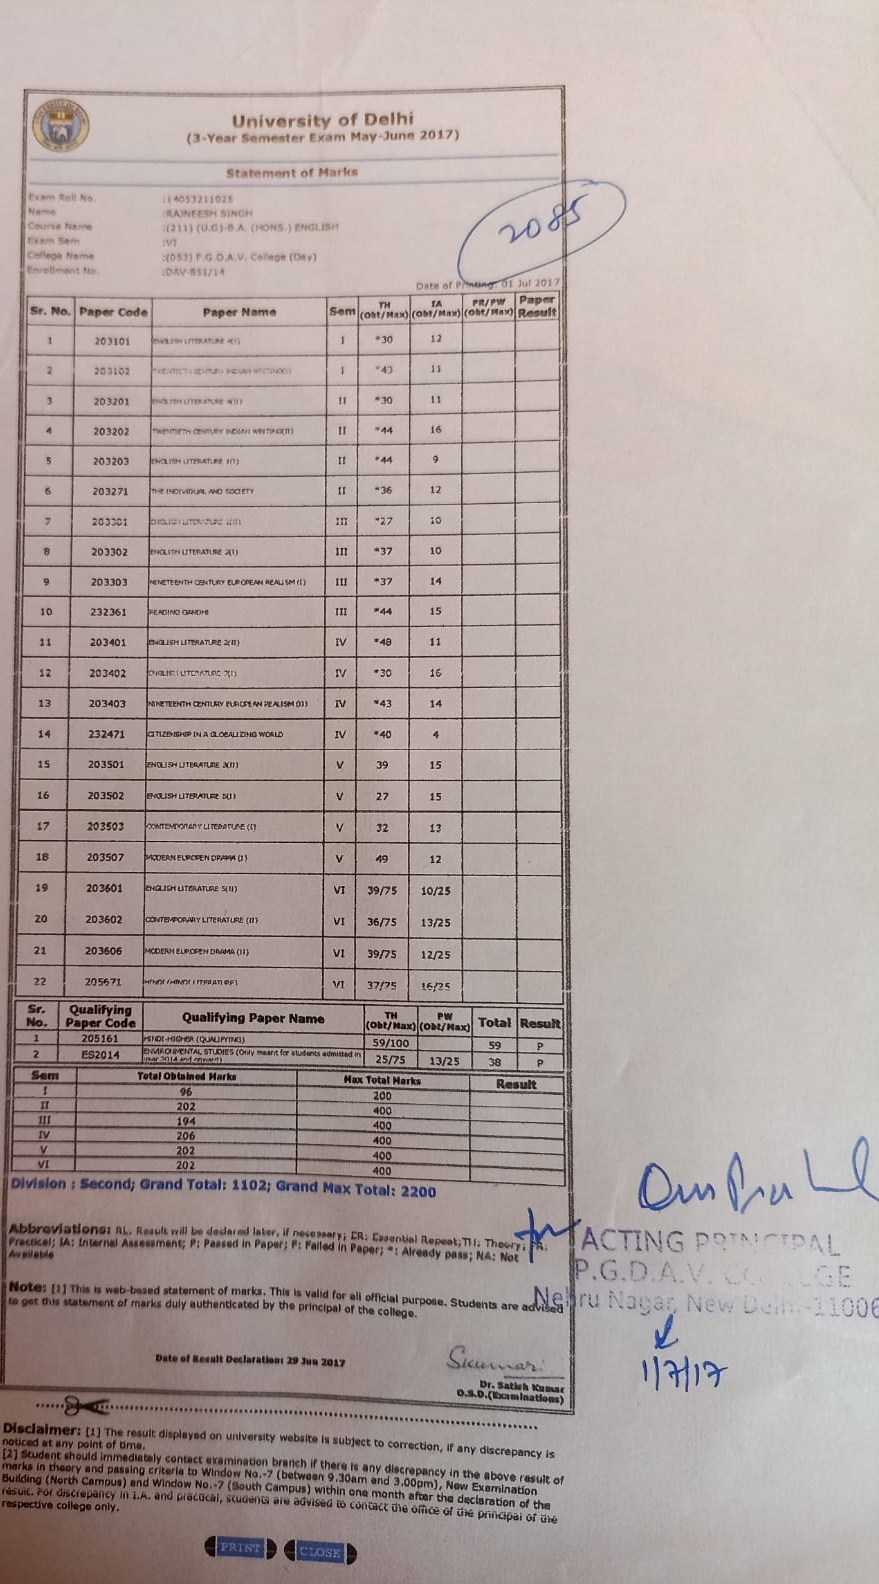 University of Delhi
(3-Year Semester Exam May-June 2017)
Statement of Marks
Exam Roll No. :14053211025
Name :RAJNEESH SINGH
Course Name :(211) (U.G)-B.A. (HONS.) ENGLISH
Exam Sem :VI
College Name :(053) P.G.D.A.V. College (Day)
Enrollment No. :DAV-851/14
2085
Date of Printing: 01 Jul 2017
Sr. No. Paper Code Paper Name Sem TH (Obt/Max) IA (Obt/Max) PR/PW (Obt/Max) Paper Result
1 203101 ENGLISH LITERATURE 4(I) I *30 12
2 203102 TWENTIETH CENTURY INDIAN WRITING(I) I *43 11
3 203201 ENGLISH LITERATURE 4(II) II *30 11
4 203202 TWENTIETH CENTURY INDIAN WRITING(II) II *44 16
5 203203 ENGLISH LITERATURE 1(I) II *44 9
6 203271 THE INDIVIDUAL AND SOCIETY II *36 12
7 203301 ENGLISH LITERATURE III *27 10
8 203302 ENGLISH LITERATURE 2(I) III *37 10
9 203303 NINETEENTH CENTURY EUROPEAN REALISM (I) III *37 14
10 232361 READING GANDHI III *44 15
11 203401 ENGLISH LITERATURE 2(II) IV *48 11
12 203402 ENGLISH LITERATURE 3(I) IV *30 16
13 203403 NINETEENTH CENTURY EUROPEAN REALISM (II) IV *43 14
14 232471 CITIZENSHIP IN A GLOBALIZING WORLD IV *40 4
15 203501 ENGLISH LITERATURE 3(II) V 39 15
16 203502 ENGLISH LITERATURE 5(I) V 27 15
17 203503 CONTEMPORARY LITERATURE (I) V 32 13
18 203507 MODERN EUROPEN DRAMA (I) V 49 12
19 203601 ENGLISH LITERATURE 5(II) VI 39/75 10/25
20 203602 CONTEMPORARY LITERATURE (II) VI 36/75 13/25
21 203606 MODERN EUROPEN DRAMA (II) VI 39/75 12/25
22 205671 VI 37/75 16/25
Sr. No. Qualifying Paper Code Qualifying Paper Name TH (Obt/Max) PW (Obt/Max) Total Result
1 205161 HINDI-HIGHER (QUALIFYING) 59/100 59 P
2 ES2014 ENVIRONMENTAL STUDIES (Only meant for students admitted in year 2014 and onward) 25/75 13/25 38 P
Sem Total Obtained Marks Max Total Marks Result
I 96 200
II 202 400
III 194 400
IV 206 400
V 202 400
VI 202 400
Division : Second; Grand Total: 1102; Grand Max Total: 2200
Abbreviations: RL. Result will be declared later, if necessary; ER: Essential Repeat;TH: Theory; PR:
Practical; IA: Internal Assessment; P: Passed in Paper; F: Failed in Paper; *: Already pass; NA: Not
Available
ACTING PRINCIPAL
P.G.D.A.V. COLLEGE
Nehru Nagar, New Delhi-11006
1/7/17
Note: [1] This is web-based statement of marks. This is valid for all official purpose. Students are advised
to get this statement of marks duly authenticated by the principal of the college.
Date of Result Declaration: 29 Jun 2017
Dr. Satish Kumar
O.S.D.(Examinations)
Disclaimer: [1] The result displayed on university website is subject to correction, if any discrepancy is
noticed at any point of time.
[2] Student should immediately contact examination branch if there is any discrepancy in the above result of
marks in theory and passing criteria to Window No.-7 (between 9.30am and 3.00pm), New Examination
Building (North Campus) and Window No.-7 (South Campus) within one month after the declaration of the
result. For discrepancy in I.A. and practical, students are advised to contact the office of the principal of the
respective college only.
PRINT CLOSE